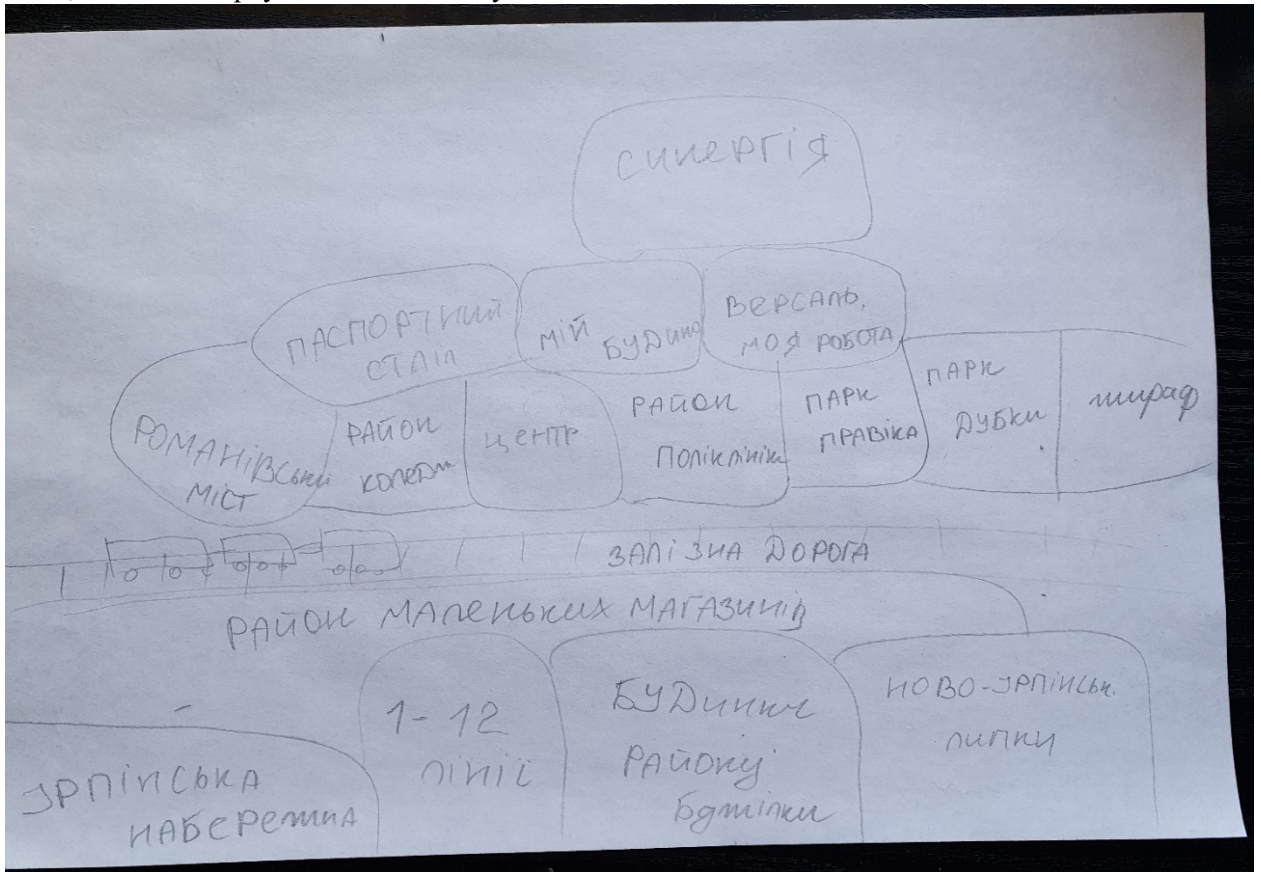 СИНЕРГІЯ
ПАСПОРТНИЙ
СТАІЛ
МІЙ
БУДИНО
ВЕРСАЛЬ,
МОЯ РОБОТА
РОМАНІВСЬКИ
МІСТ
РАЙОН
КОЛЕДЖ
ЦЕНТР
РАЙОН
ПОЛІКЛІНІКИ
ПАРК
ПРАВІКА
ПАРК
ДУБКИ
жираф
ЗАЛІЗНА ДОРОГА
РАЙОН МАЛЕНЬКИХ МАГАЗИНІВ
ІРПІНСЬКА
НАБЕРЕЖНА
1-12
ЛІНІЇ
БУДИНКИ
РАЙОНУ
Бджілки
НОВО-ІРПІНСЬК.
ЛИПКИ